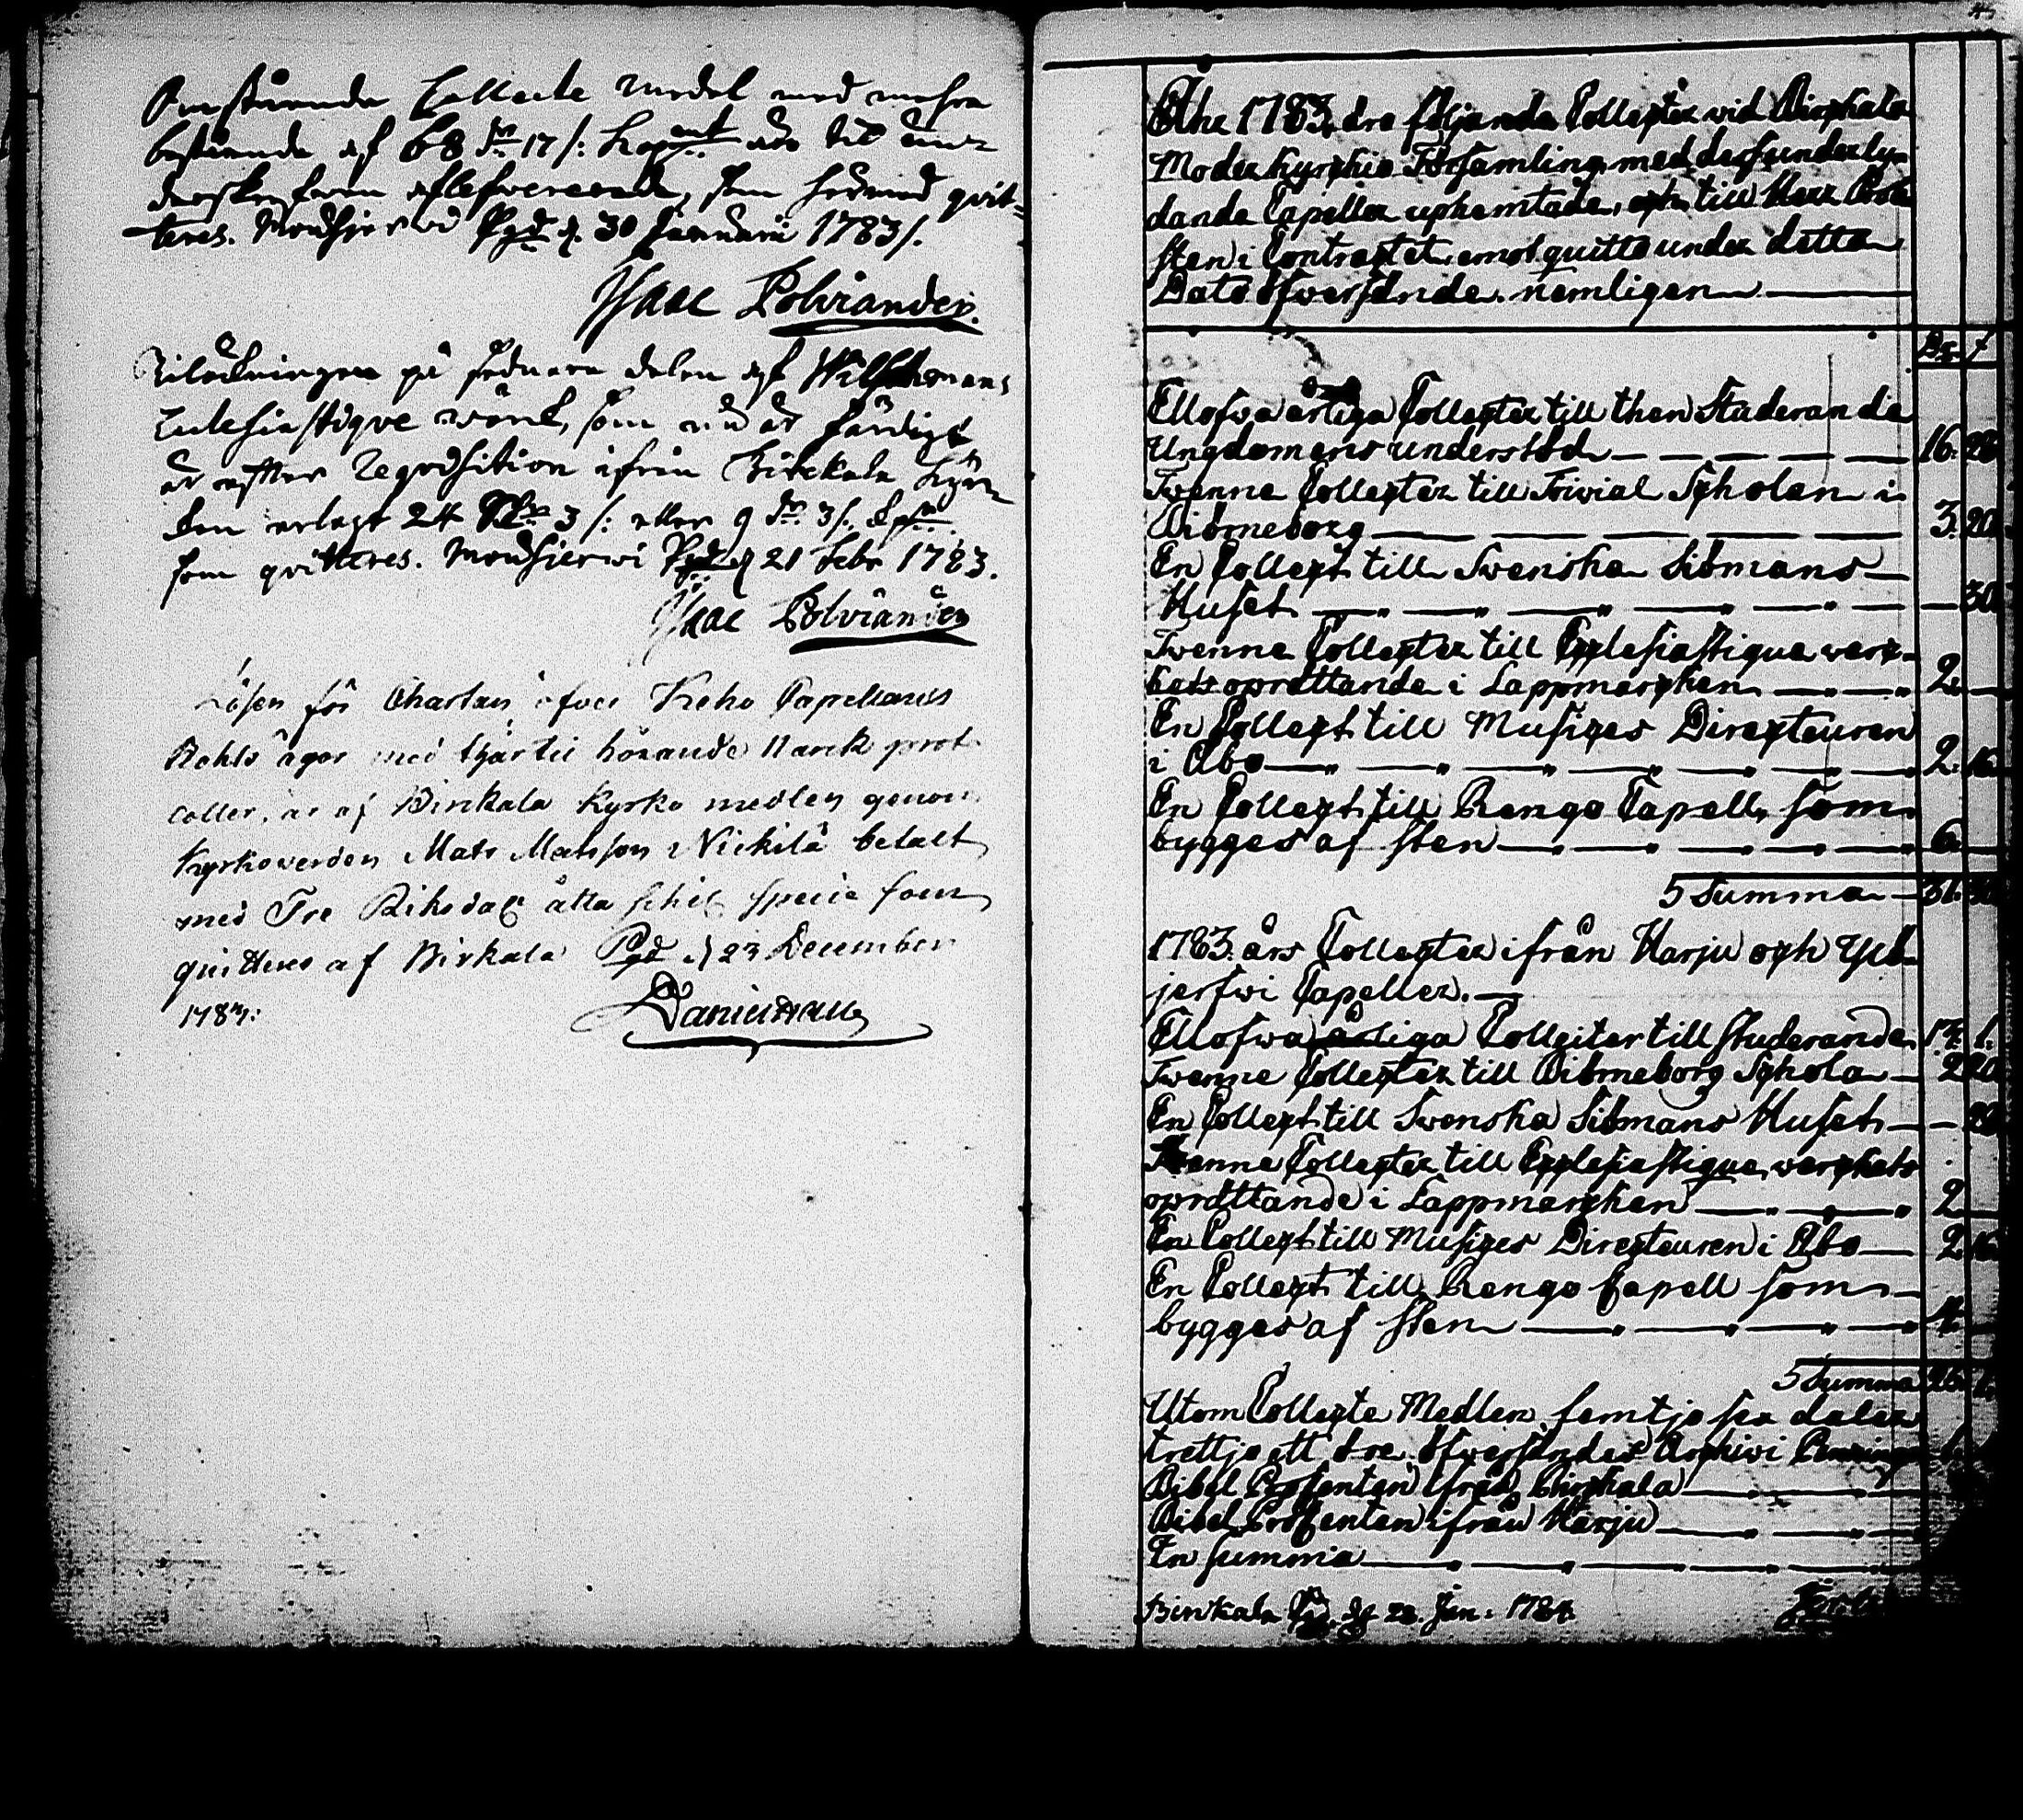 Ofvanstående Collecte medel med mehra
bestående af 68 dr 17 /: Kopmt äro til und
derskrefven aflefwererade, som härmed qvit-
teres. Mouhijerwi Pgd d. 30 Januarii 1783/.
Isaac Polviander.
på sednare delen af Wilskmans
Eclesiastique wärck, som nu är färdigt
är efter reqvisition ifrån Birckala Kyrc
kan erlagt 24 3 /: eller 9 dr 3/.
som qvitteres. Mouhijerwi Pgd d 21 Febr 1783.
Isaac Polviander
Lösen för Chartan öfver Keho Capellans
Bohls ägor med thärtil hörande Narck proto
coller, är af Birkala Kyrko medlen genom
Kyrkoverden Mats Matsson Nickilä betalt
med Tre Riksdal åtta schil specie som
quitteres af Birkala Pgd d 23 December
1783:
Daniel Hall
Åhr 1783 äro följande Collecter vid Birckala
Moder Kyrckio Församling med des underly-
dande Capeller uphemtade, och till Herr Prob
sten i Contractet emot quitto under detta
Dato öfversände nemligen
Dr /
Ellofwa årliga Collecter till then Studerande
Ungdomens understöd 16. 28
Twenne Collecter till Trivial Scholan i
Biörneborg 3. 20
En Collect till Swenska Siömans
Huset 30
Twenne Collecter till Ecclesiastique werc-
kets oprättande i Lappmarcken 2.
En Collect till Musices Directeuren
i Åbo 2. 16
En Collect till Rengo Capell som
bygges af sten 6
Summa 31. 30
1783. års Collecter ifrån Harju och Ylö-
jerfwi Capeller.
Ellofwa årliga Collecter till studerande 14. 1.
Twenne Collecter till Biörneborg Schola 2 20
En Collect till Swenska Siömans Huset 28
Twenne Collecter till Ecclesiastique werckets
oprättande i Lappmarcken 2
En Collect till Musices Directeuren i Åbo 2. 16
En Collect till Rengo Capell som
bygges af sten 4.
Summa 25. 1.
Utom Collecte Medlen femtjo sex daler
trettjo ett öre öfversändes Archivi Penningar
Bibel Procenten ifrån Birckala
Bibel Procenten ifrån Harju
En summa
Birkala Pgd d 28. Jan: 1784.